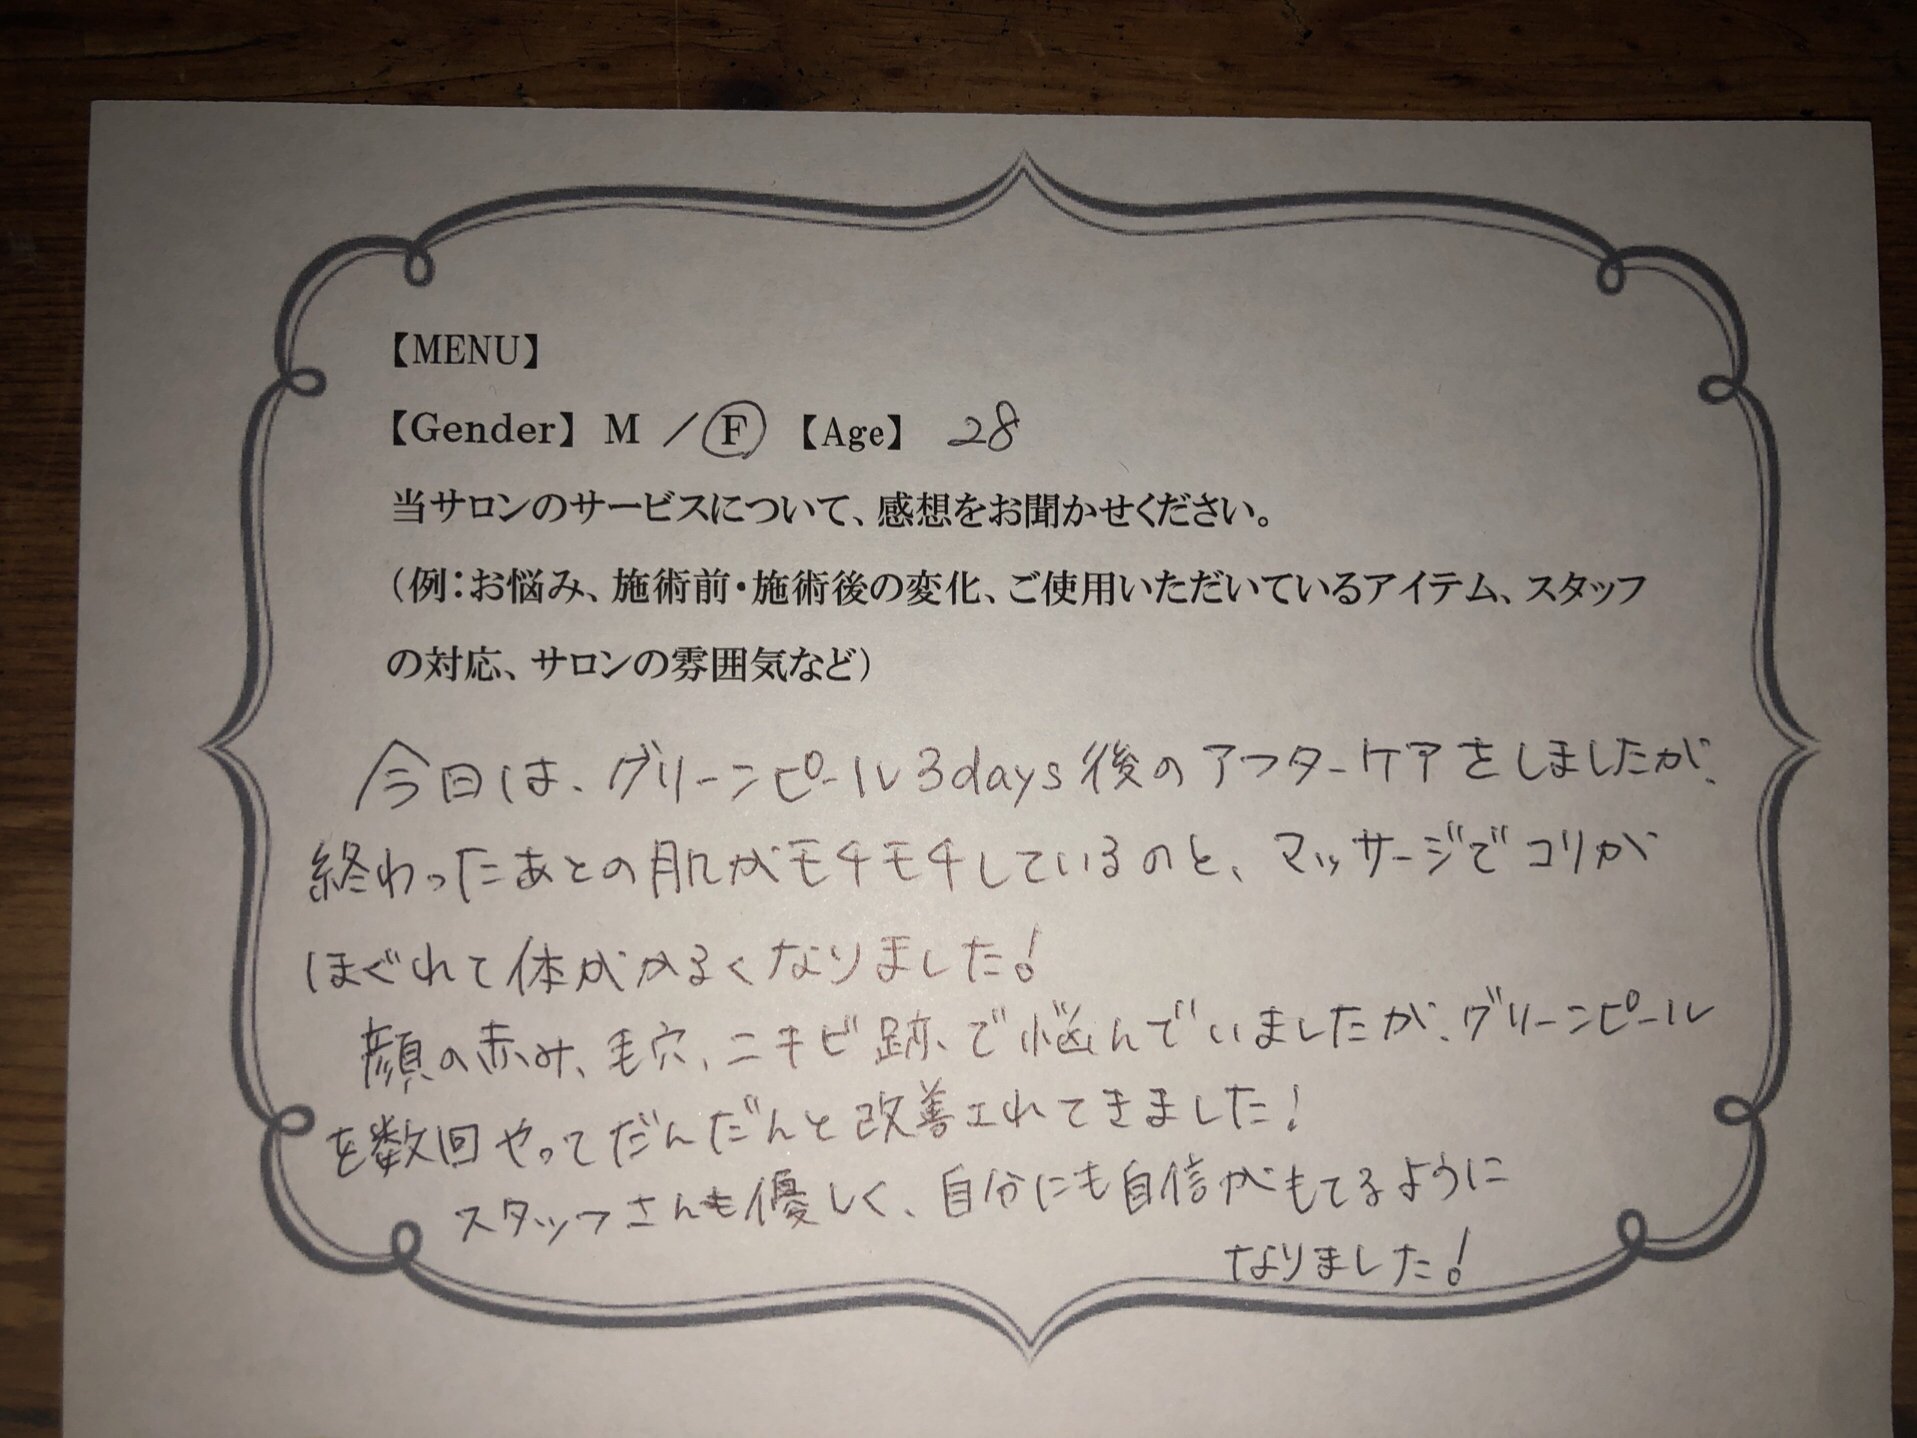 【MENU】
【Gender】 M ／ F 【Age】 28
当サロンのサービスについて、感想をお聞かせください。
（例：お悩み、施術前・施術後の変化、ご使用いただいているアイテム、スタッフ
の対応、サロンの雰囲気など）
今日は、グリーンピール3days後のアフターケアをしましたが、
終わったあとの肌がモチモチしているのと、マッサージでコリが
ほぐれて体がかるくなりました!
顔の赤み、毛穴、ニキビ跡で悩んでいましたが、グリーンピール
を数回やってだんだんと改善されてきました!
スタッフさんも優しく、自分にも自信がもてるように
なりました!